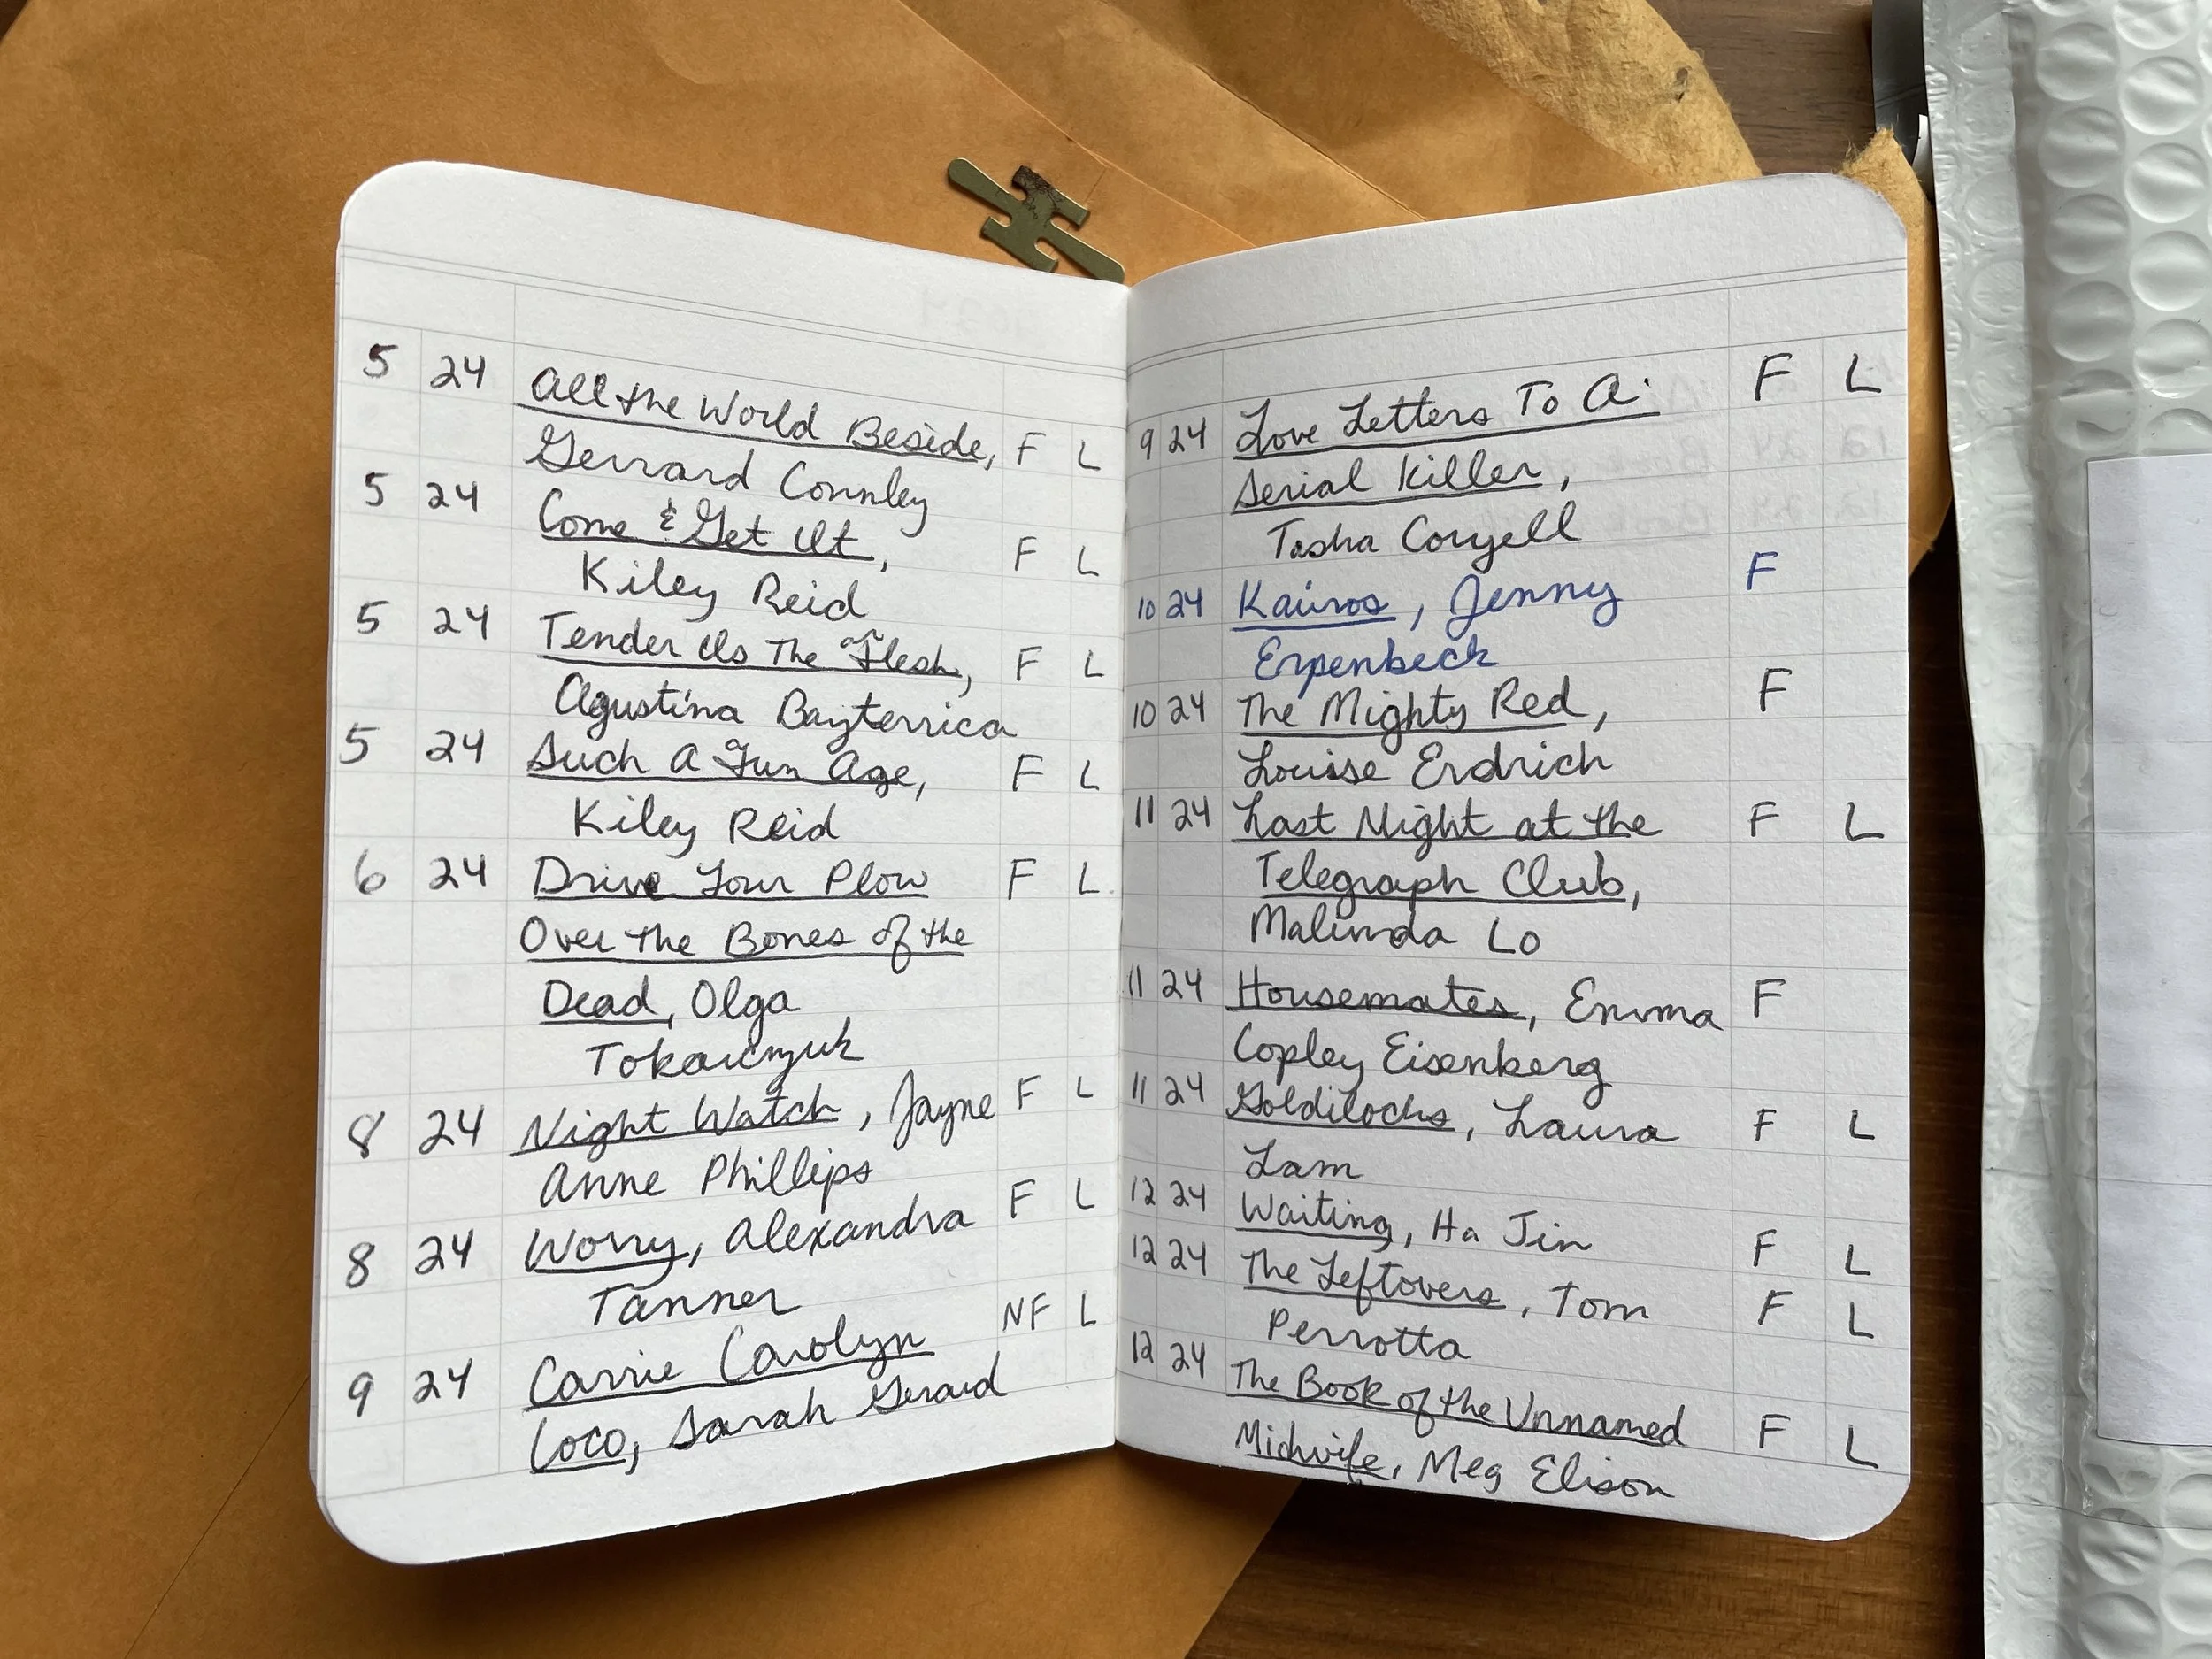 5 24 All the World Beside, F L
Gerrard Connley
5 24 Come & Get It, F L
Kiley Reid
5 24 Tender Is The Flesh, F L
Agustina Bazterrica
5 24 Such A Fun Age, F L
Kiley Reid
6 24 Drive Your Plow F L
Over the Bones of the
Dead, Olga
Tokarczyuk
8 24 Night Watch, Jayne F L
Anne Phillips
8 24 Worry, Alexandra F L
Tanner
9 24 Carrie Carolyn NF L
Coco, Sarah Gerard
9 24 Love Letters To A F L
Serial Killer,
Tasha Coryell
10 24 Kairos, Jenny F
Erpenbeck
10 24 The Mighty Red, F
Louise Erdrich
11 24 Last Night at the F L
Telegraph Club,
Malinda Lo
11 24 Housemates, Emma F
Copley Eisenberg
11 24 Goldilocks, Laura F L
Lam
12 24 Waiting, Ha Jin F L
12 24 The Leftovers, Tom F L
Perrotta
12 24 The Book of the Unnamed F L
Midwife, Meg Elison